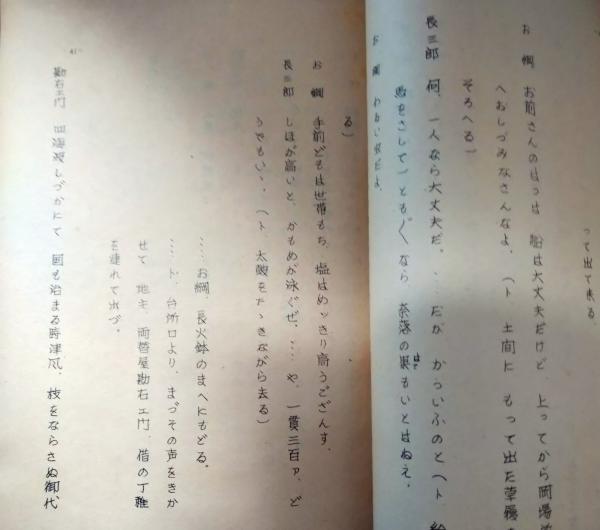 って出て来る。
お 綱 お前さんのはっは 船は大丈夫だけど、上ってから岡場
へおしづみなさんなよ。（ト 土間に もって出た草履
そろへる）
長三郎 何、一人なら大丈夫だ。……だが かういふのと（ト 絵
をさして）ともぐなら 奈落の果もいとはねえ。
はて
お 綱 わるい洒だよ
る）
お 綱 手前どもは世帯もち、塩はめッきり高うござんす。
長三郎 しほが高いと、かもめが泳ぐぜ。……や、一貫三百ァ、ど
うでもい、、（ト、太皷をたゝきながら去る）
……お綱 長火鉢のまへにもどる。
……ト、台所口より、まづその声をきか
せて 地主 両替屋勘右ェ門、借の丁雅
を連れて出づ。
勘右ェ門 四海波しづかにて 国も治まる時津風、枝をならさぬ御代
41